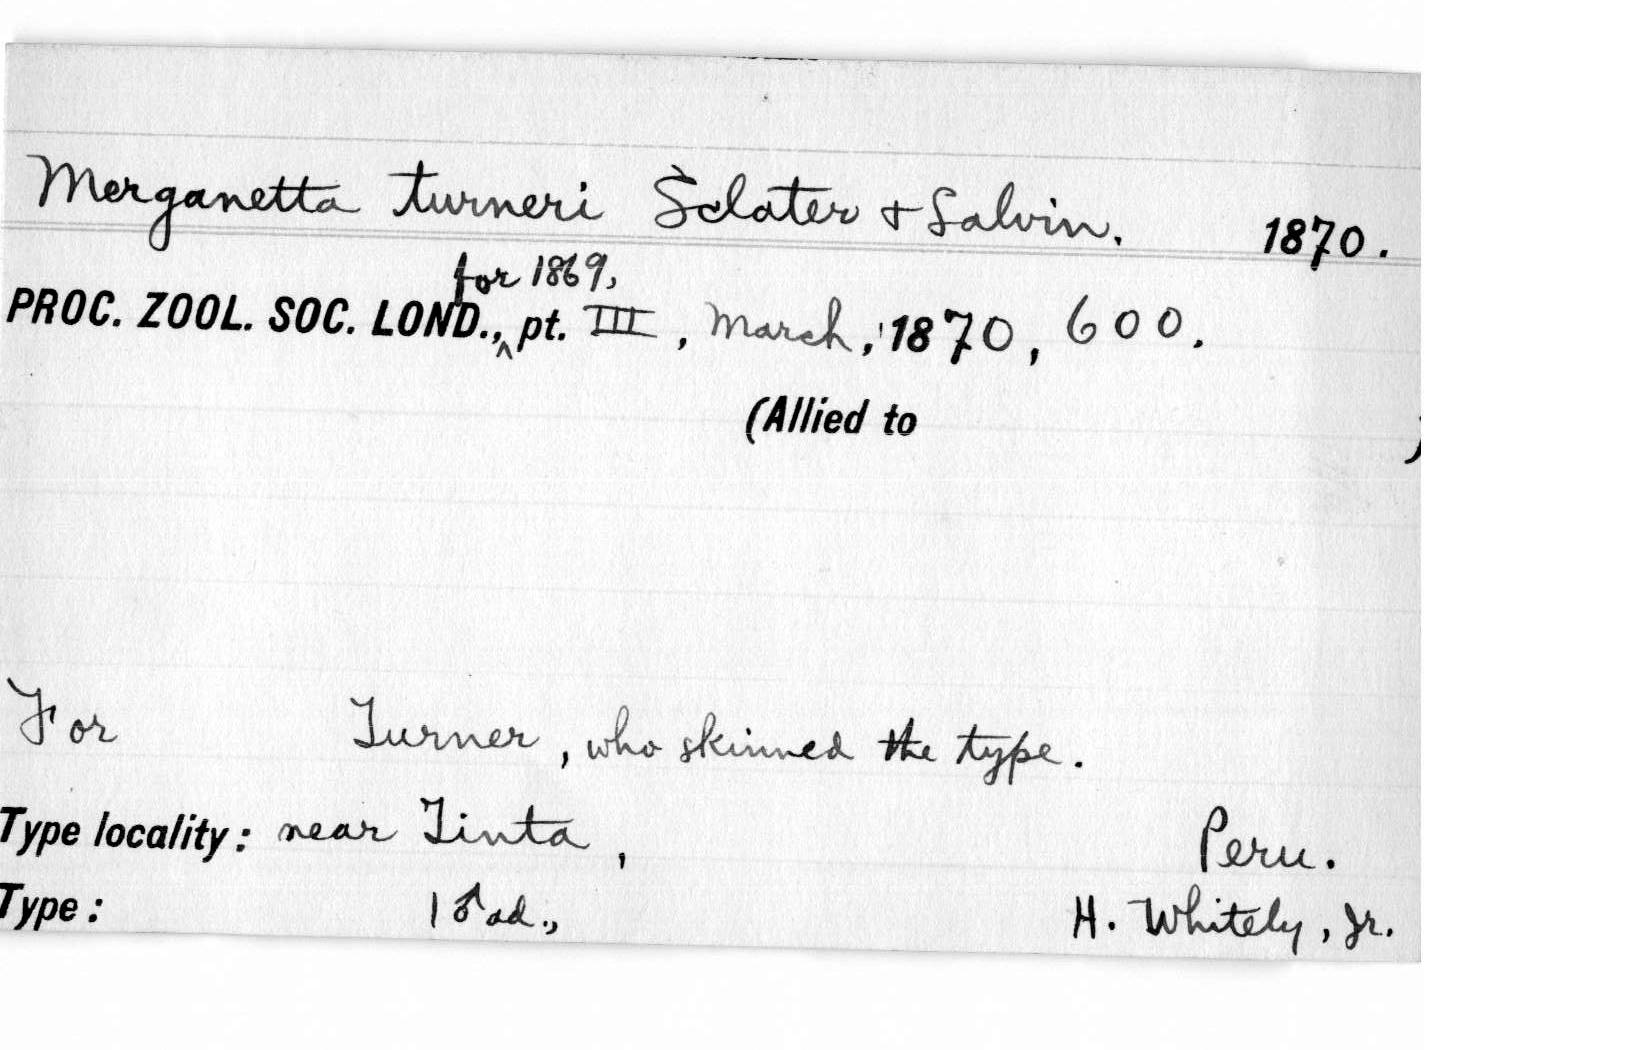 Merganetta turneri Sclater & Salvin. 1870.
for 1869,
PROC. ZOOL. SOC. LOND., ^ pt. III, March, 1870, 600.
(Allied to )
For Turner, who skinned the type.
Type locality: near Tinta, Peru.
Type: 1 ♂ ad., H. Whitely, Jr.